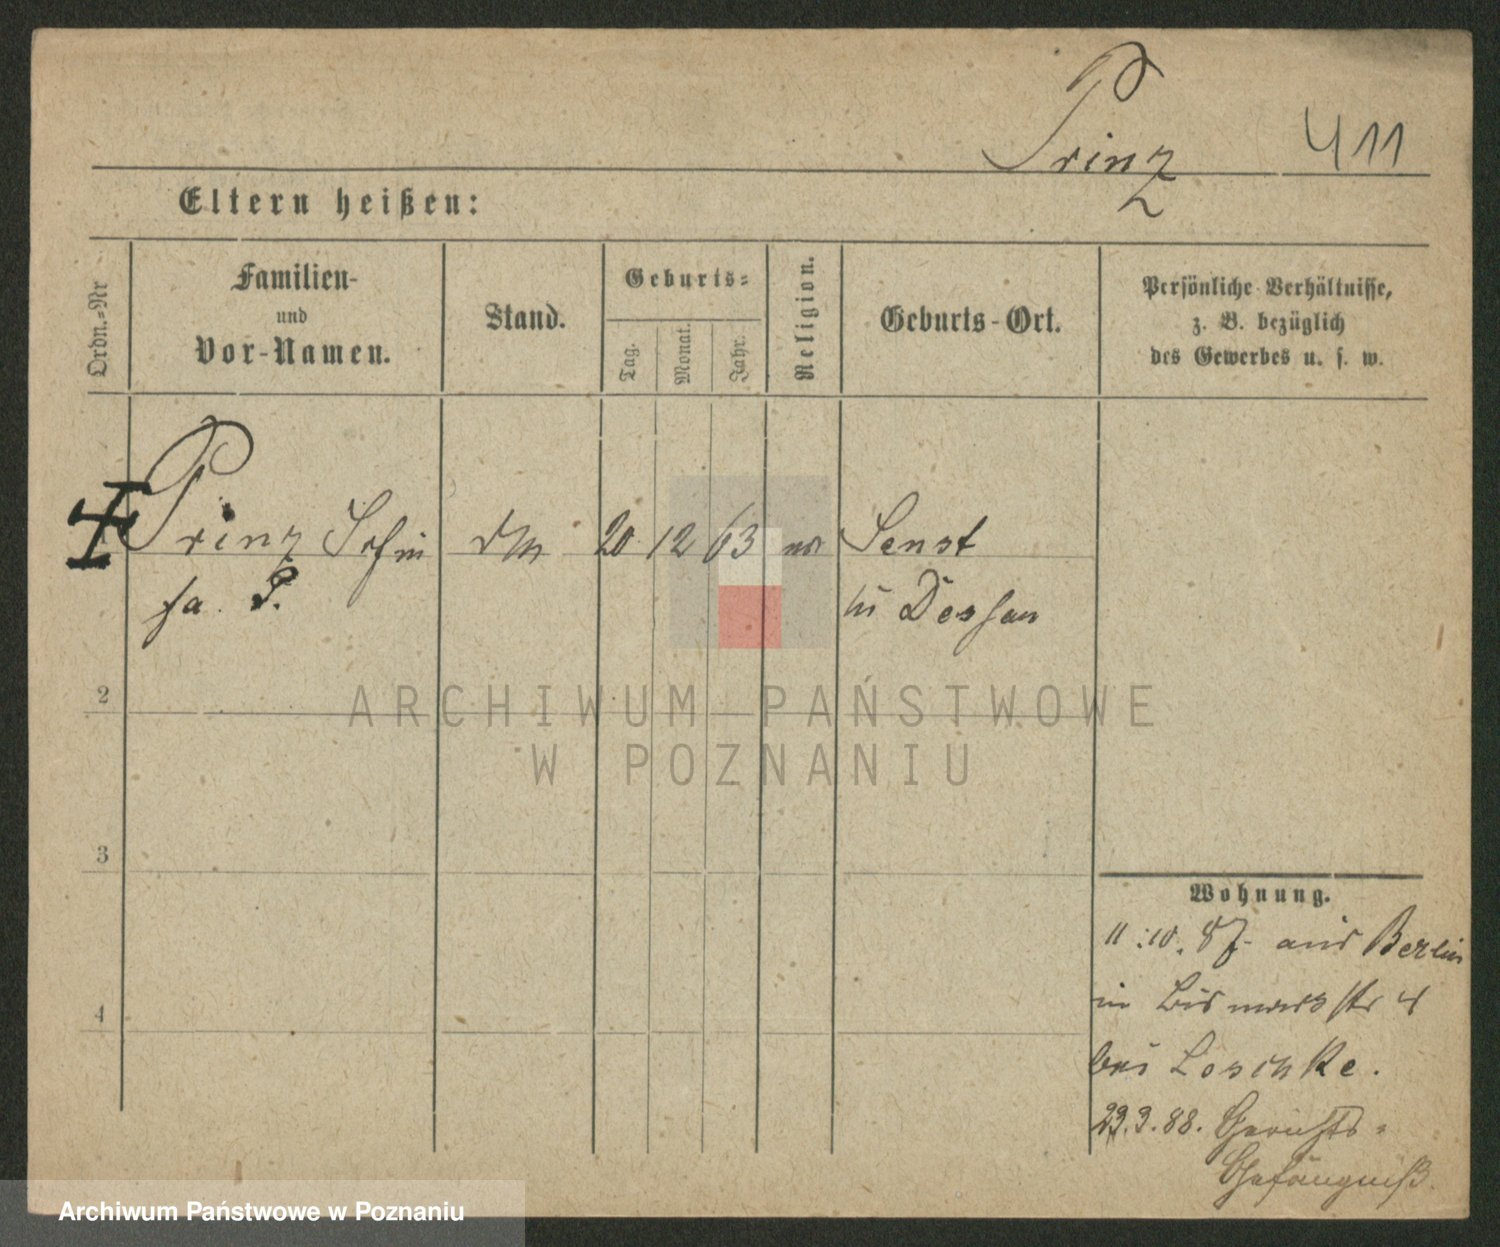 Prinz 411
Eltern heißen:
Ordn.-Nr
Familien-
und
Vor-Namen.
Stand.
Geburts-
Tag.
Monat.
Jahr.
Religion.
Geburts-Ort.
Persönliche Verhältnisse,
z. B. bezüglich
des Gewerbes u. s. w.
Prinz 20 12 63 Senst
in Dessau
2
3
4
Wohnung.
11.10.87. aus Berlin
in Bismarckstr 4
bei Loschke.
23.3.88. Gerichts-
Gefängniß.
ARCHIWUM PAŃSTWOWE
W POZNANIU
Archiwum Państwowe w Poznaniu